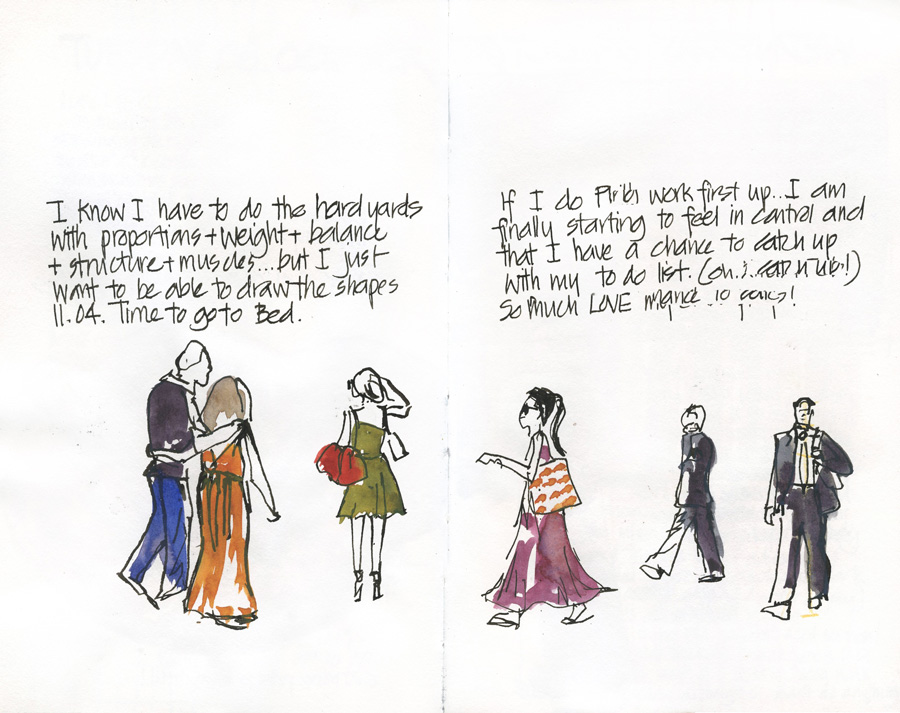 I know I have to do the hard yards
with proportions + weight + balance
+ structure + muscles...but I just
want to be able to draw the shapes
11.04. Time to go to Bed.
If I do work first up...I am
finally starting to feel in control and
that I have a chance to catch up
with my to do list. (oh...
So much LOVE